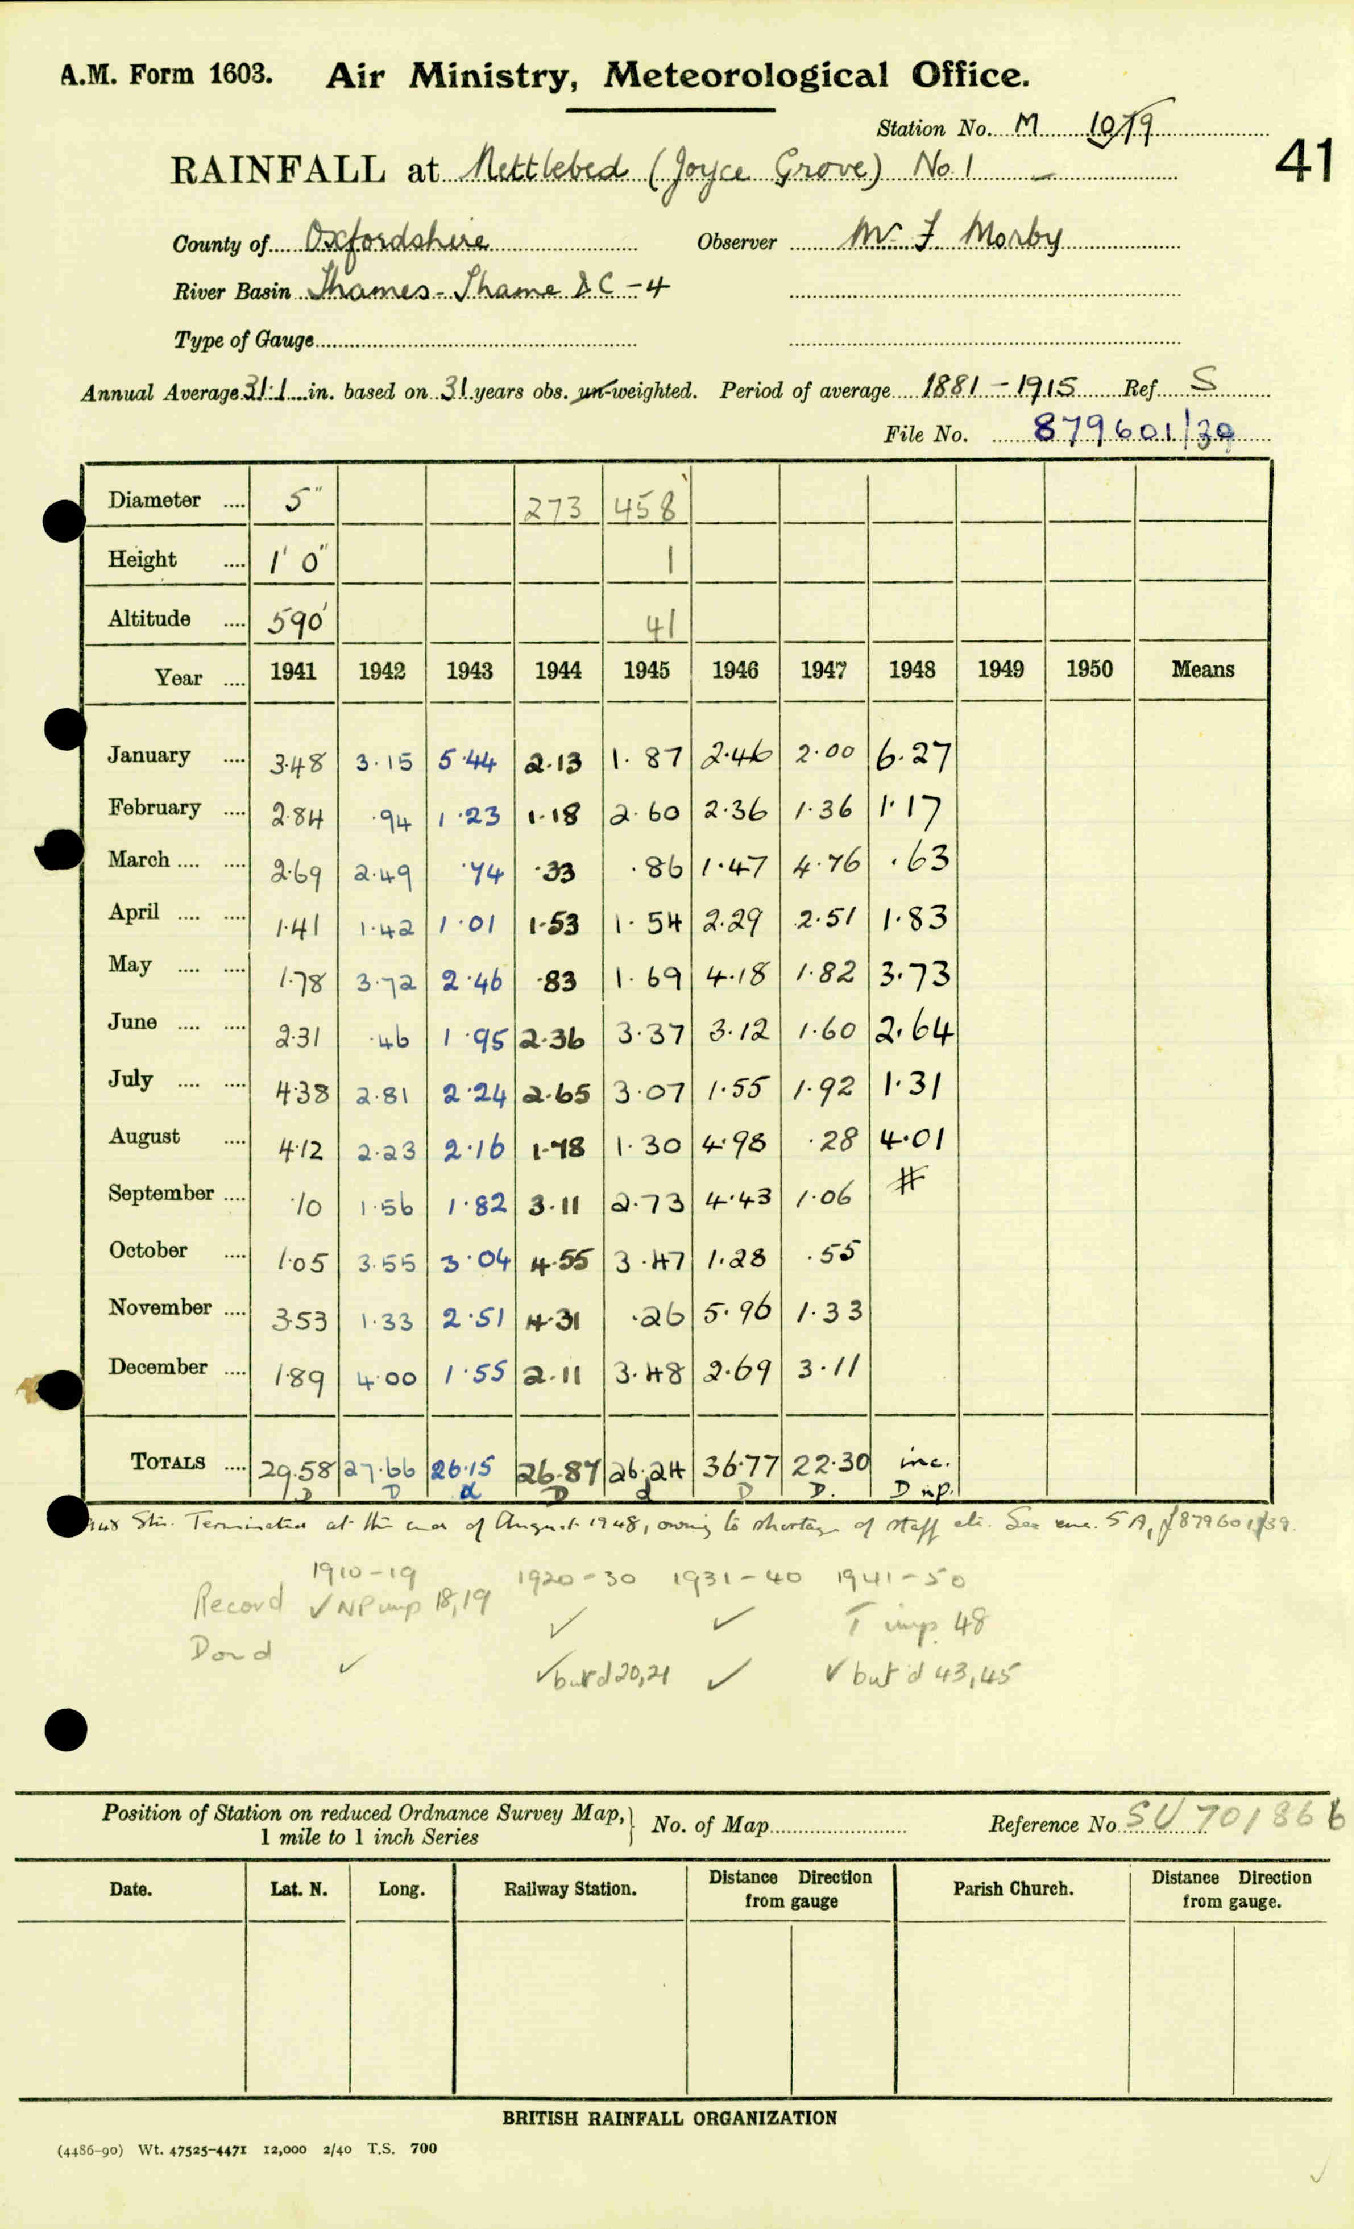 A.M. Form 1603. Air Ministry, Meteorological Office.
Station No. M 1079
41
RAINFALL at Nettlebed (Joyce Grove) No. 1
County of Oxfordshire Observer Mr. F Morby
River Basin Thames - Thame & C - 4
Type of Gauge
Annual Average 31.1 in. based on 31 years obs. un-weighted. Period of average 1881 - 1915 Ref S
File No. 879601/39
Diameter 5" 273 458
Height 1' 0" 1
Altitude 590' 41
Year 1941 1942 1943 1944 1945 1946 1947 1948 1949 1950 Means
January 3.48 3.15 5.44 2.13 1.87 2.46 2.00 6.27
February 2.84 .94 1.23 1.18 2.60 2.36 1.36 1.17
March 2.69 2.49 .74 .33 .86 1.47 4.76 .63
April 1.41 1.42 1.01 1.53 1.54 2.29 2.51 1.83
May 1.78 3.72 2.46 .83 1.69 4.18 1.82 3.73
June 2.31 .46 1.95 2.36 3.37 3.12 1.60 2.64
July 4.38 2.81 2.24 2.65 3.07 1.55 1.92 1.31
August 4.12 2.23 2.16 1.78 1.30 4.98 .28 4.01
September .10 1.56 1.82 3.11 2.73 4.43 1.06 #
October 1.05 3.55 3.04 4.55 3.47 1.28 .55
November 3.53 1.33 2.51 4.31 .26 5.96 1.33
December 1.89 4.00 1.55 2.11 3.48 2.69 3.11
TOTALS 29.58 27.66 26.15 26.87 26.24 36.77 22.30 inc.
D D d D d D D. D np.
1948 Stn. Terminated at the end of August 1948, owing to shortage of staff etc. See enc. 5A, f 879601/39.
1910-19 1920-30 1931-40 1941-50
Record ✓ NP imp 18,19 ✓ ✓ T imp. 48
D or d ✓ ✓ but d 20,21 ✓ ✓ but d 43,45
Position of Station on reduced Ordnance Survey Map,
1 mile to 1 inch Series
No. of Map Reference No SU 701866
Date. Lat. N. Long. Railway Station. Distance Direction from gauge Parish Church. Distance Direction from gauge.
BRITISH RAINFALL ORGANIZATION
(4486-90) Wt. 47525-4471 12,000 2/40 T.S. 700